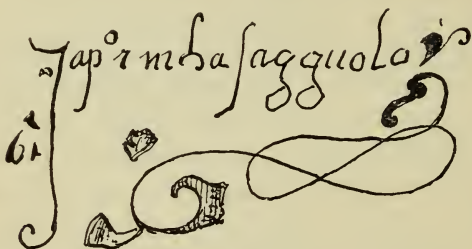 Jap°r mha ſagguolo